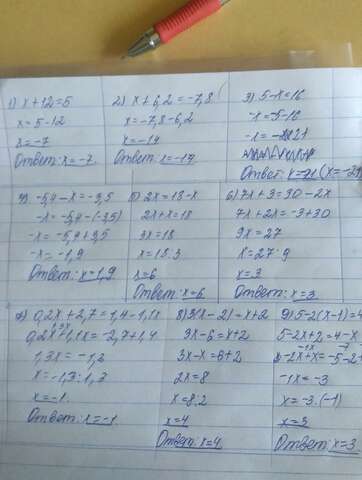 1) x+12=5
x=5-12
x=-7
Ответ: x=-7
2) x+6,2=-7,8
x=-7,8-6,2
x=-14
Ответ: x=-14
3) 5-x=16
-x=5-16
Ответ:
4) -5,4-x=-3,5
-x=-5,4-(-3,5)
-x=-5,4+3,5
-x=-1,9
Ответ: x=1,9
5) 2x=18-x
2x+x=18
3x=18
x=18:3
x=6
Ответ: x=6
6) 7x+3=30-2x
7x+2x=-3+30
9x=27
x=27:9
x=3
Ответ: x=3
7) 0,2x+2,7=1,4-1,1x
0,2x+1,1x=-2,7+1,4
1,3x=-1,3
x=-1,3:1,3
x=-1
Ответ: x=-1
8) 3(x-2)=x+2
3x-6=x+2
3x-x=6+2
2x=8
x=8:2
x=4
Ответ: x=4
9) 5-2(x-1)=4
5-2x+2=4-x
-1x=-3
x=-3·(-1)
x=3
Ответ: x=3